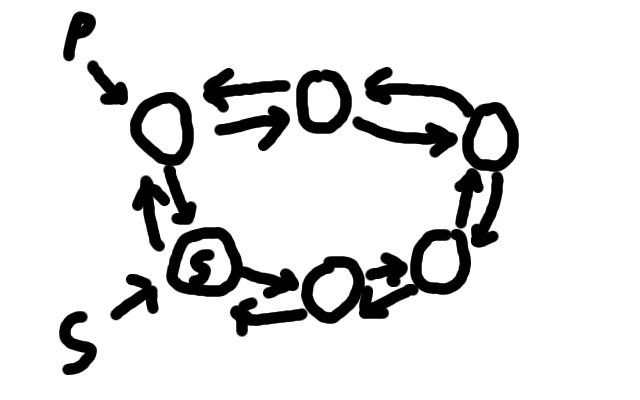 P
S
S